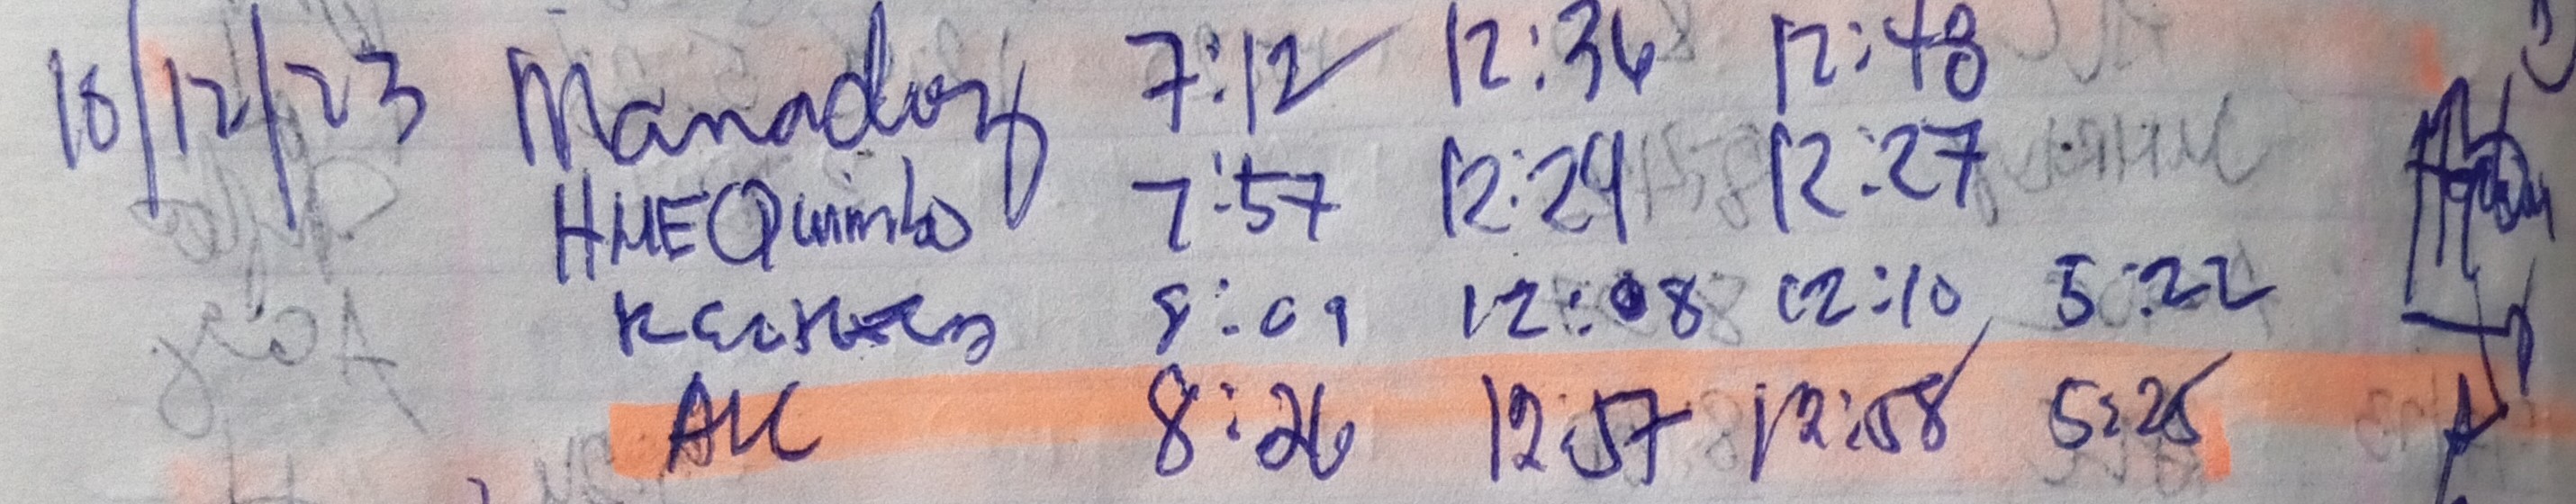 10/12/23 Manadoy 7:12 12:36 12:48
HMEQuimbo 7:57 12:24 12:27
8:09 12:08 12:10 5:22
AUC 8:26 12:57 12:58 5:25